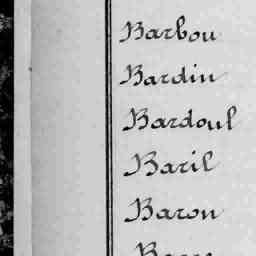 Barbou
Bardin
Bardoul
Baril
Baron